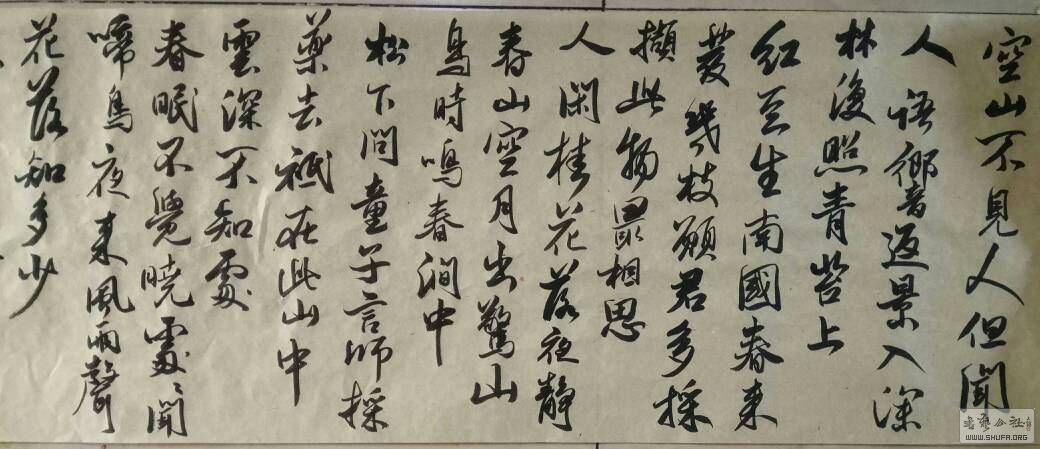 空山不見人但聞
人語響音返景入深
林復照青苔上
紅豆生南國春來
發幾枝願君多採
擷此物最相思
人閑桂花落夜靜
春山空月出驚山
鳥時鳴春澗中
松下問童子言師採
藥去祇在此山中
雲深不知處
春眠不覺曉處〻聞
啼鳥夜來風雨聲
花落知多少
WWW.SHUFA.ORG